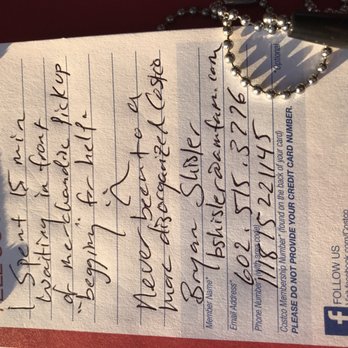 Spent 15 min
waiting in front
of merchandise pickup
"begging" for help.
Never been to a
more disorganized Costco
Bryan Shisler
Member Name*
bshisler@amfam.com
Email Address*
602.515.3776
Phone Number (with area code)
111851221145
Costco Membership Number* (found on the back of your card)
PLEASE DO NOT PROVIDE YOUR CREDIT CARD NUMBER.
*Optional
FOLLOW US
facebook.com/Costco